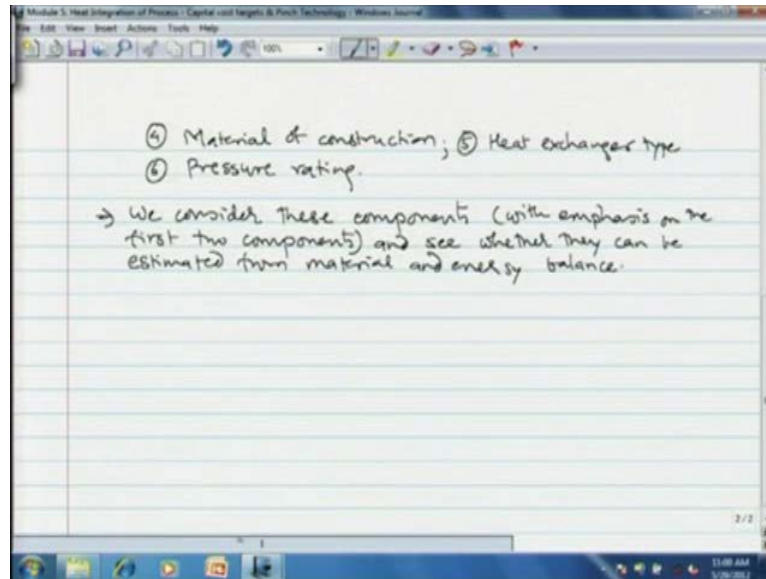 Module 5: Heat Integration of Process - Capital cost targets & Pinch Technology - Windows Journal
File Edit View Insert Actions Tools Help
100%
④ Material of construction; ⑤ Heat exchanger type
⑥ Pressure rating.
→ We consider these components (with emphasis on the
first two components) and see whether they can be
estimated from material and energy balance.
2/2
11:00 AM
5/29/2012